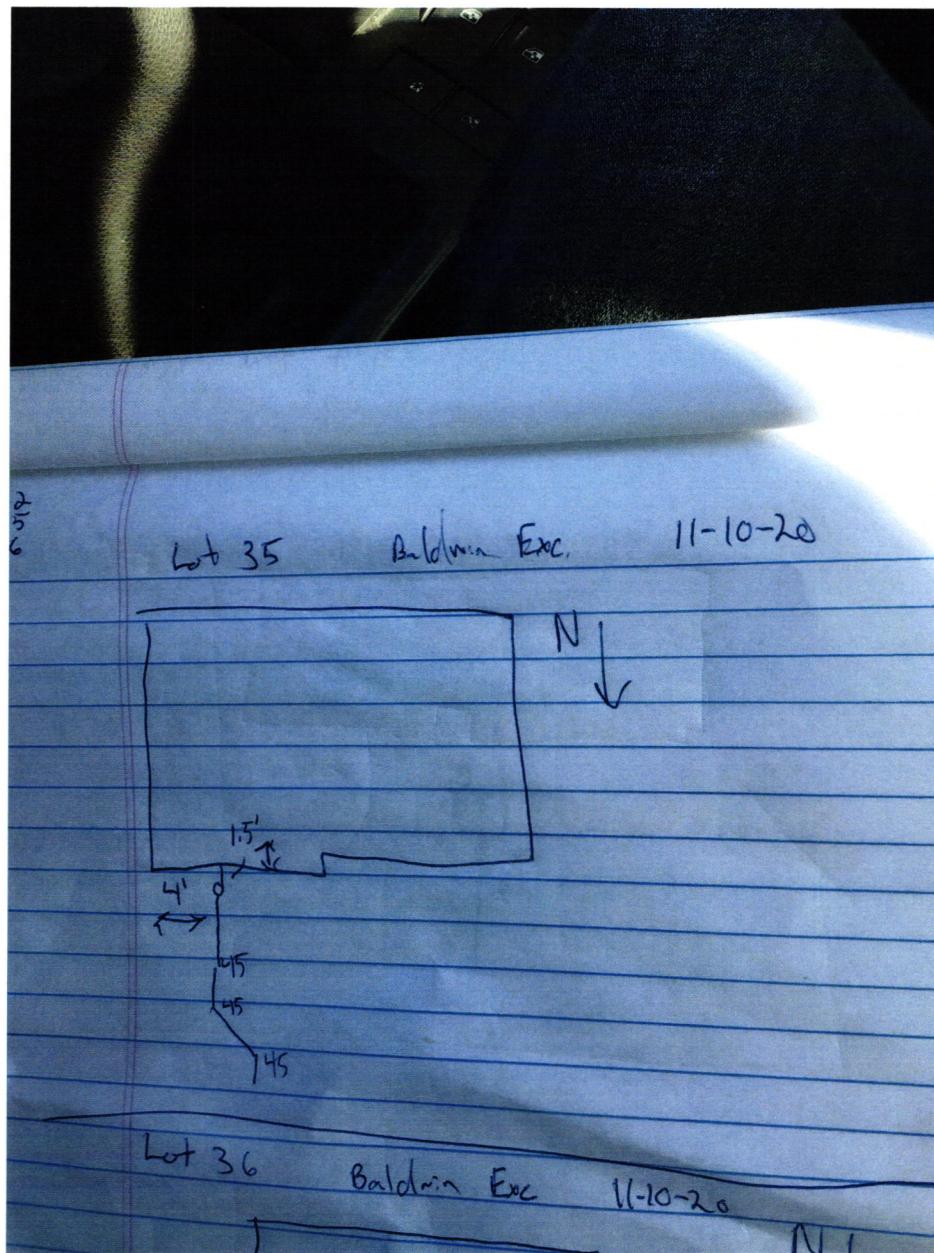 2
5
6
Lot 35 Baldwin Exc. 11-10-20
N
1.5'
4'
45
45
45
Lot 36 Baldwin Exc 11-10-20
N